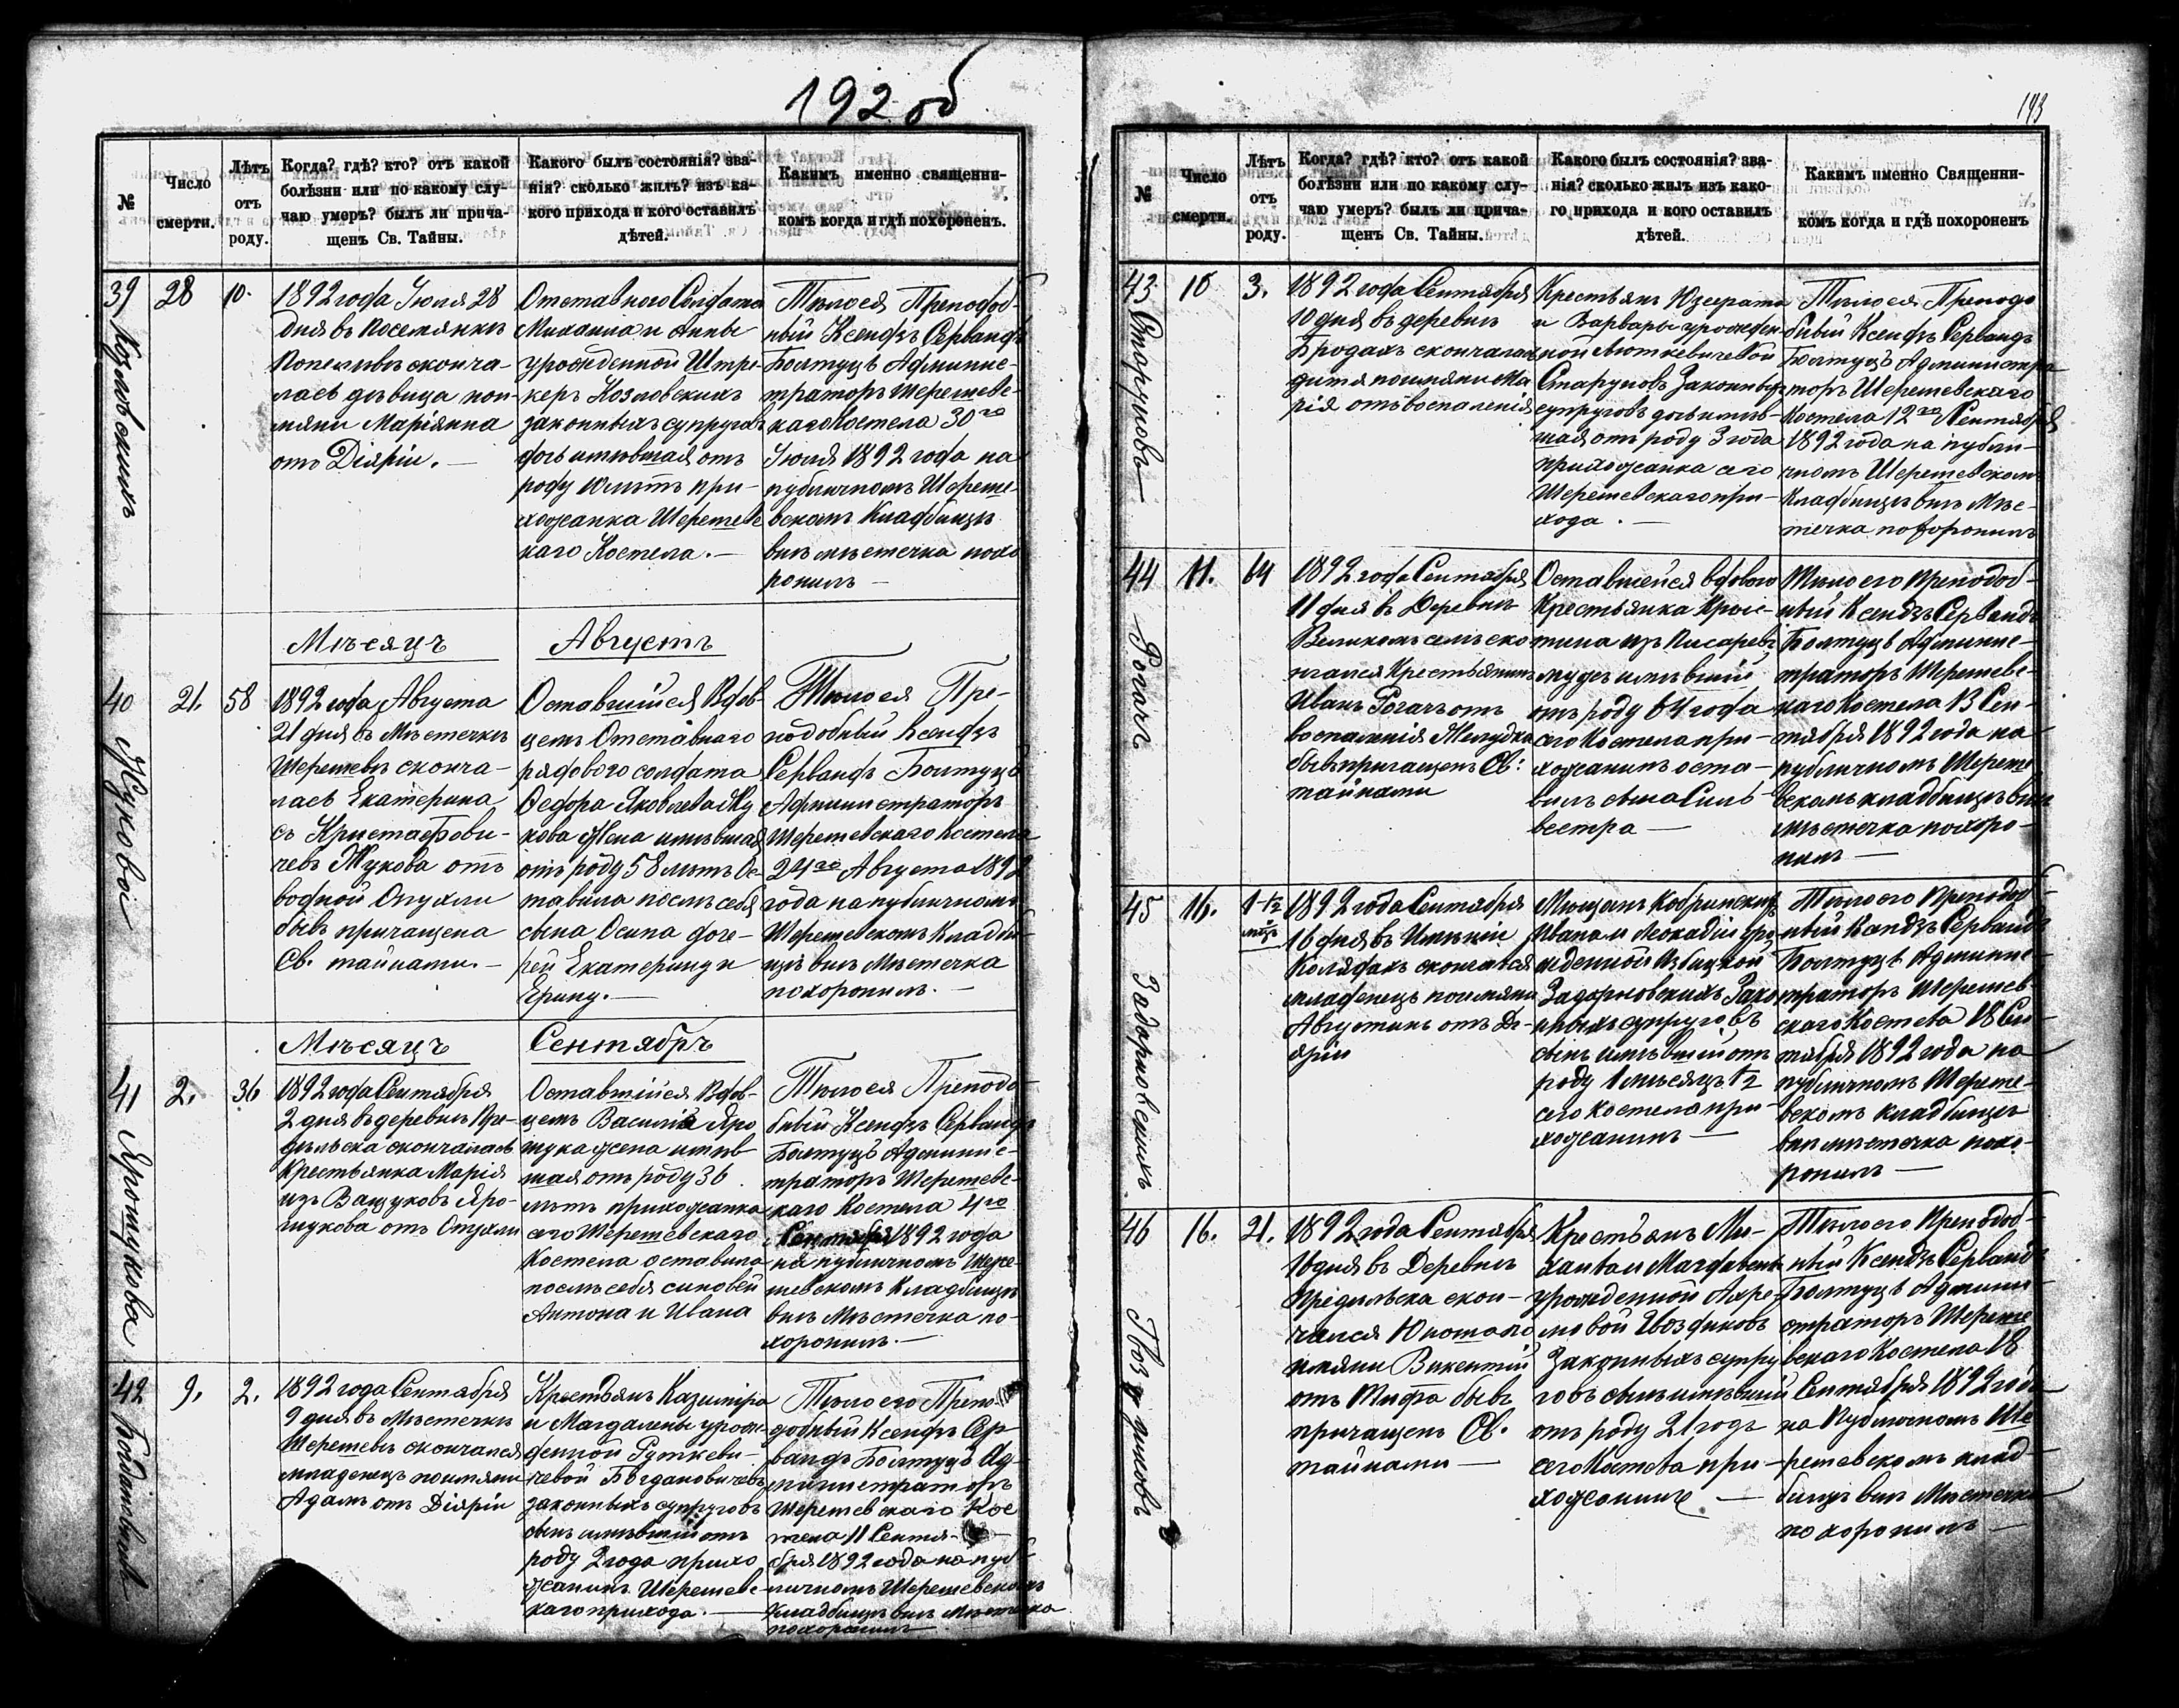 192 об
№
Число
смерти.
Лѣтъ
отъ
роду.
Когда? гдѣ? кто? отъ какой
болѣзни или по какому слу-
чаю умеръ? былъ ли прича-
щенъ Св. Тайны.
Какого былъ состоянія? зва-
нія? сколько жилъ? изъ ка-
кого прихода и кого оставилъ
дѣтей.
Какимъ именно священни-
комъ когда и гдѣ похороненъ.
39
Козловскихъ
28
10.
1892 года Іюля 28
дня въ
сконча-
лась дѣвица пои-
мяни Маріянна
отъ Діяріи. —
Отставного Солдата
Михаила и Анны
урожденной Штре-
керъ Козловскихъ
законныхъ супруговъ
дочь имѣвшая отъ
роду 10 лѣтъ при-
хожанка Шерешевс
каго Костела. —
Тѣло ея Преподоб-
ный Ксендзъ Сервандъ
Болтуць Админис-
траторъ Шерешевс-
каго Костела 30го
Іюля 1892 года на
публичномъ Шереше-
вскомъ Кладбищѣ
внѣ мѣстечка похо
ронилъ —
Мѣсяцъ
Августъ
40
Жуковой
21.
58
1892 года Августа
21 дня въ Мѣстечкѣ
Шерешевѣ сконча-
лась Екатерина
съ Кристафови-
чевъ Жукова отъ
водной Опухли
бывъ причащена
Св. тайнами. —
Оставшійся Вдов-
цемъ Отставнаго
рядового солдата
Ѳедора Яковлева Жу
кова жена имѣвшая
отъ роду 58 лѣтъ Ос-
тавила послѣ себя
сына Осипа доче-
рей Екатерину и
Ерину. —
Тѣло ея Пре-
подобный Ксендзъ
Сервандъ Болтуць
Администраторъ
Шерешевскаго Костела
24го Августа 1892
года на публичномъ
Шерешевскомъ Кладби-
щѣ внѣ Мѣстечка
похоронилъ. —
Мѣсяцъ
Сентябрь
41
Ярошукова
2.
36
1892 года Сентября
2 дня въ деревнѣ Пре-
дѣльска скончалась
Крестьянка Марія
изъ Ващуковъ Яро-
шукова отъ Опухли
Оставшійся Вдов-
цемъ Василія Яро
шука жена имѣв
шая отъ роду 36
лѣтъ прихожанка
сего Шерешевскаго
Костела оставила
послѣ себя сыновей
Антона и Ивана
Тѣло ея Преподо-
бный Ксендзъ Сервандъ
Болтуць Админис-
траторъ Шерешевс-
каго Костела 4го
Сентября 1892 года
на публичномъ Шере-
шевскомъ Кладбищѣ
внѣ Мѣстечка по-
хоронилъ. —
42
9.
2.
1892 года Сентября
9 дня въ Мѣстечкѣ
Шерешевѣ скончался
младенецъ поимяни
Адамъ отъ Діяріи
Крестьянъ Казимира
и Магдалены урож-
денной Руткеви-
чевой Богдановичевъ
законныхъ супруговъ
сынъ имѣвшій отъ
роду 2 года прихо
жанинъ Шерешевс-
каго прихода. —
Тѣло его Препо-
добный Ксендзъ Сер
вандъ Болтуць Ад-
министраторъ
Шерешевскаго Кос
тела 11 Сентя-
бря 1892 года на пуб-
личномъ Шерешевскомъ
Кладбищѣ внѣ Мѣстечка
похоронилъ
193
№
Число
смерти.
Лѣтъ
отъ
роду.
Когда? гдѣ? кто? отъ какой
болѣзни или по какому слу-
чаю умеръ? былъ ли прича-
щенъ Св. Тайны.
Какого былъ состоянія? зва-
нія? сколько жилъ изъ како-
го прихода и кого оставилъ
дѣтей.
Какимъ именно Священни-
комъ когда и гдѣ похороненъ
43
Старуновъ
10
3.
1892 года Сентября
10 дня въ деревнѣ
Бродахъ скончалась
дитя поимяни Ма
рія отъ воспаленія
Крестьянъ Юзефата
и Варвары урожден-
ной Люткевичевой
Старуновъ Законныхъ
супруговъ дочь имѣв-
шая отъ роду 3 года
прихожанка сего
Шерешевскаго при-
хода. —
Тѣло ея Преподо
бный Ксендзъ Сервандъ
Болтуць Администра
торъ Шерешевскаго
Костела 12го Сентября
1892 года на публи-
чномъ Шерешевскомъ
Кладбищѣ внѣ Мѣс-
течка похоронилъ
44
Рогачъ
11.
64
1892 года Сентября
11 дня въ Деревнѣ
Великомъ селѣ ско
нчался Крестьянинъ
Иванъ Рогачъ отъ
воспаленія Желудка
бывъ причащенъ Св:
тайнами
Оставшейся вдового
Крестьянка Крис-
тина изъ
мужъ имѣвшій
отъ роду 64 года
сего Костела при-
хожанинъ оста-
вилъ сына Силь-
вестра —
Тѣло его Преподоб-
ный Ксендзъ Сервандъ
Болтуць Админис-
траторъ Шерешевс-
каго Костела 13 Сен-
тября 1892 года на
публичномъ Шереше
вскомъ кладбищѣ внѣ
мѣстечка похоро-
нилъ —
45
Задарновскихъ
16.
1 ½
мѣс.
1892 года Сентября
16 дня въ Имѣніи
скончался
младенецъ поимяни
Августинъ отъ Ді-
яріи
Мѣщанъ Кобринскихъ
Ивана и Леокадіи уро
жденной
Задарновскихъ Зако
нныхъ супруговъ
сынъ имѣвшій отъ
роду 1 мѣсяцъ ½
сего костела при-
хожанинъ —
Тѣло его Преподоб-
ный Ксндзъ Сервандъ
Болтуць Админис-
траторъ Шерешев-
скаго Костела 18 Сен-
тября 1892 года на
публичномъ Шереше-
вскомъ кладбищѣ
внѣ мѣстечка похо-
ронилъ —
46
16.
21.
1892 года Сентября
16 дня въ Деревнѣ
Предѣльска скон-
чался Юноша по
имяни Викентій
отъ Тифа бывъ
причащенъ Св.
тайнами —
Крестьянъ Ми-
хаила и Магдалены
урожденной Ахре-
мовой Гвоздиковъ
Законныхъ супру
говъ сынъ имѣвшій
отъ роду 21 годъ
сего Костела при-
хожанинъ. —
Тѣло его Преподоб-
ный Ксендзъ Сервандъ
Болтуць Админи-
страторъ Шереше
вскаго Костела 18
Сентября 1892 года
на Публичномъ Ше
решевскомъ клад-
бищѣ внѣ Мѣстечка
похоронилъ —